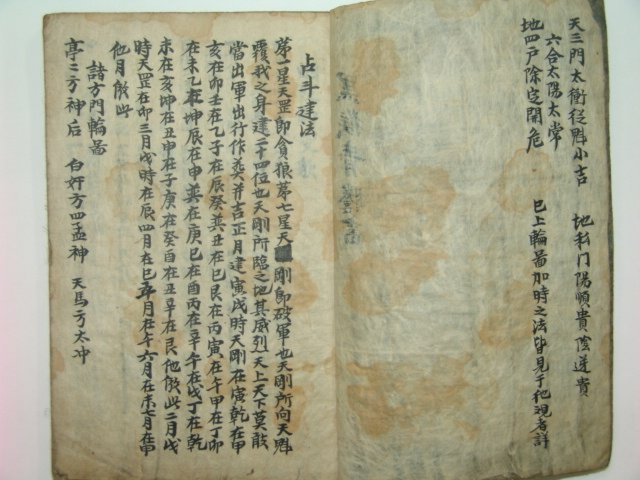 天三門太衝從魁小吉 地私門陽順貴陰逆貴
六合太陽太常
地四戶除定開危 已上輪畜加時之法皆見于他視者詳
占斗建法
第一星天罡即貪狼第七星天剛即破軍也天剛所向天魁
覆我之身建二十四位也天剛所臨之地其威烈天上天下莫敢
當出軍出行作葬并吉正月建寅戌時天剛在寅乾在甲
亥在卯壬在乙子在辰癸葬丑在巳艮在丙寅在午甲在丁卯
在未乙在坤辰在申巽在庚巳在酉丙在辛午在戌丁在乾
未在亥坤在丑申在子庚在癸酉在丑辛在艮他倣此二月戌
時天罡在卯三月戌時在辰四月在巳五月在午六月在未七月在申
他月倣此
諸方門輪畜
亭二方神后 白奸方四孟神 天馬方太冲